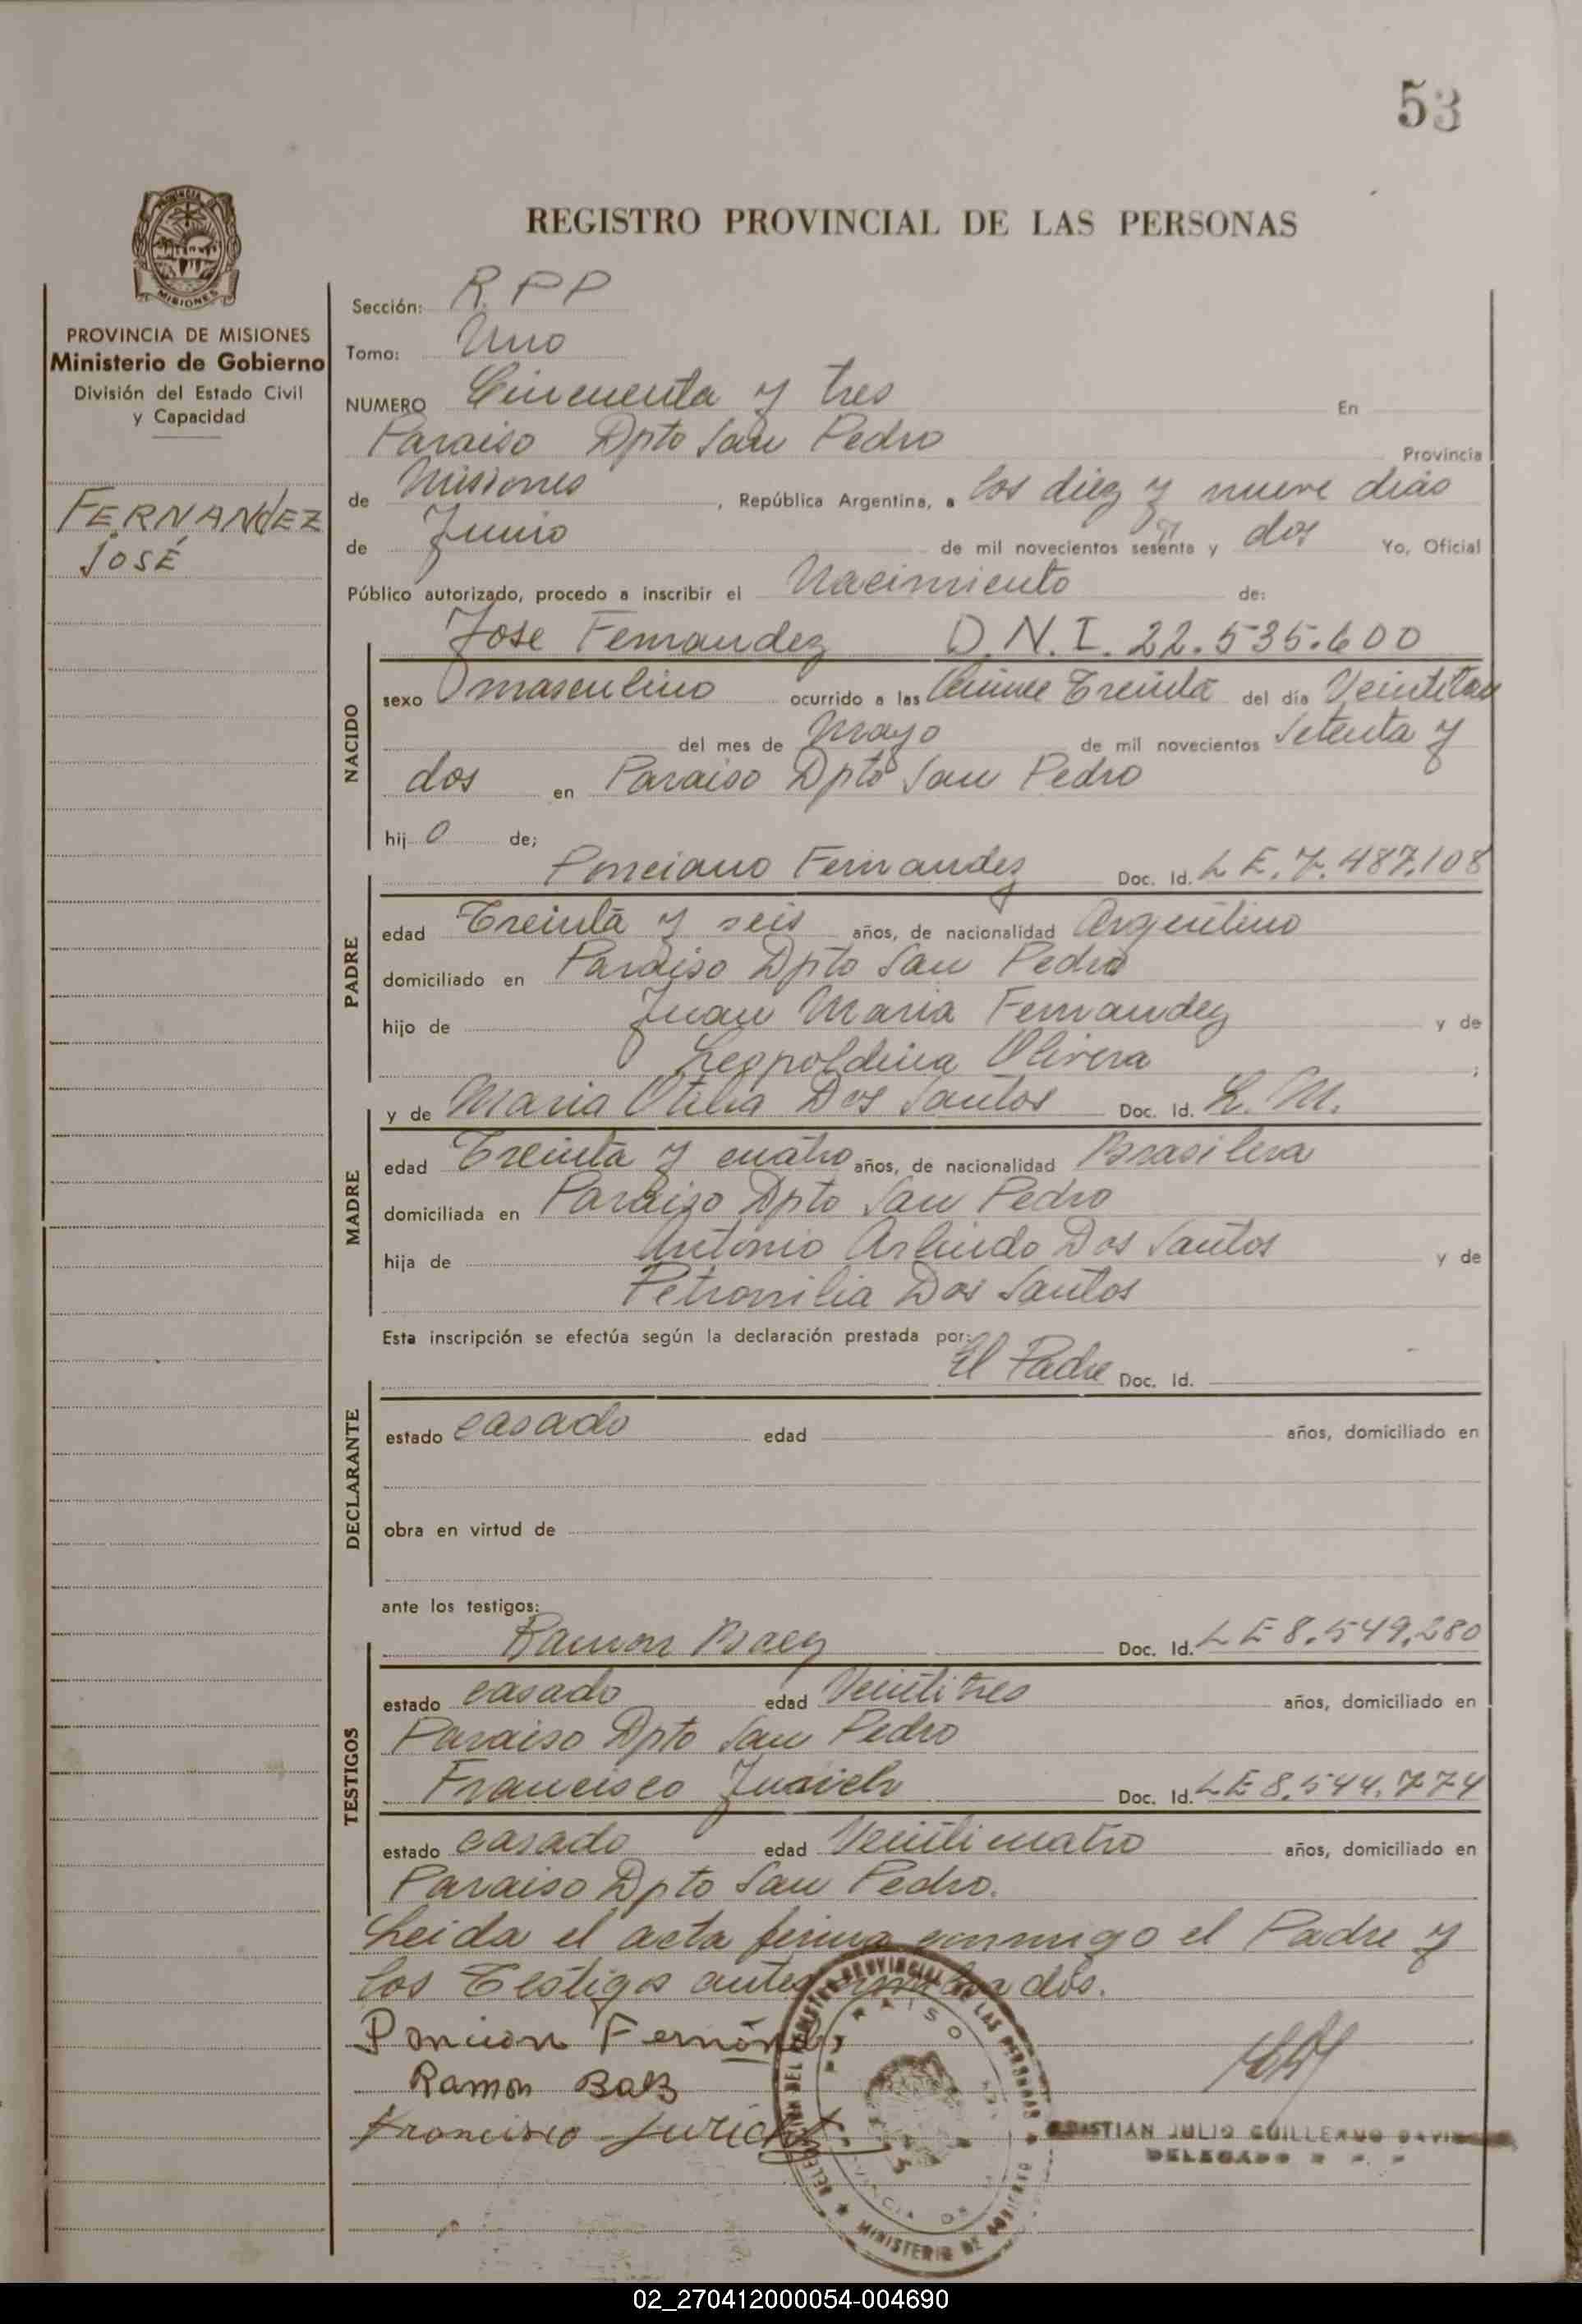 53
REGISTRO PROVINCIAL DE LAS PERSONAS
MISIONES
PROVINCIA DE MISIONES
Ministerio de Gobierno
División del Estado Civil
y Capacidad
FERNANdEZ
JOSÉ
Sección: R.PP
Tomo: Uno
NUMERO Cincuenta y tres En
Paraiso Dpto San Pedro Provincia
de Misiones, República Argentina, a los diez y nueve dias
de Junio de mil novecientos sesenta y dos Yo, Oficial
Público autorizado, procedo a inscribir el Nacimiento de:
NACIDO
Jose Fernandez D.N.I. 22.535.600
sexo masculino ocurrido a las Quince Treinta del día
del mes de Mayo de mil novecientos Setenta y
dos en Paraiso Dpto San Pedro
hijo de;
PADRE
Ponciano Fernandez Doc. Id. L E. 7.487.108
edad Treinta y seis años, de nacionalidad Argentino
domiciliado en Paraiso Dpto San Pedro
hijo de Juan Maria Fernandez y de
Leopoldina Olivera ;
MADRE
y de Maria Otilia Dos Santos Doc. Id. L. M.
edad Treinta y cuatro años, de nacionalidad Brasilera
domiciliada en Paraiso Dpto San Pedro
hija de Antonio Arlindo Dos Santos y de
Petronilia Dos Santos
Esta inscripción se efectúa según la declaración prestada por:
El Padre Doc. Id.
DECLARANTE
estado casado edad años, domiciliado en
obra en virtud de
ante los testigos:
TESTIGOS
Ramon Baez Doc. Id. L E 8.549.280
estado casado edad Veintitres años, domiciliado en
Paraiso Dpto San Pedro
Francisco Doc. Id. L E 8.544.774
estado casado edad Veinticuatro años, domiciliado en
Paraiso Dpto San Pedro.
Leida el acta firma conmigo el Padre y
los Testigos
Ramon
Francisco
JULIO GUILLERMO
DELEGADO
MINISTERIO DE GOBIERNO
02_270412000054-004690